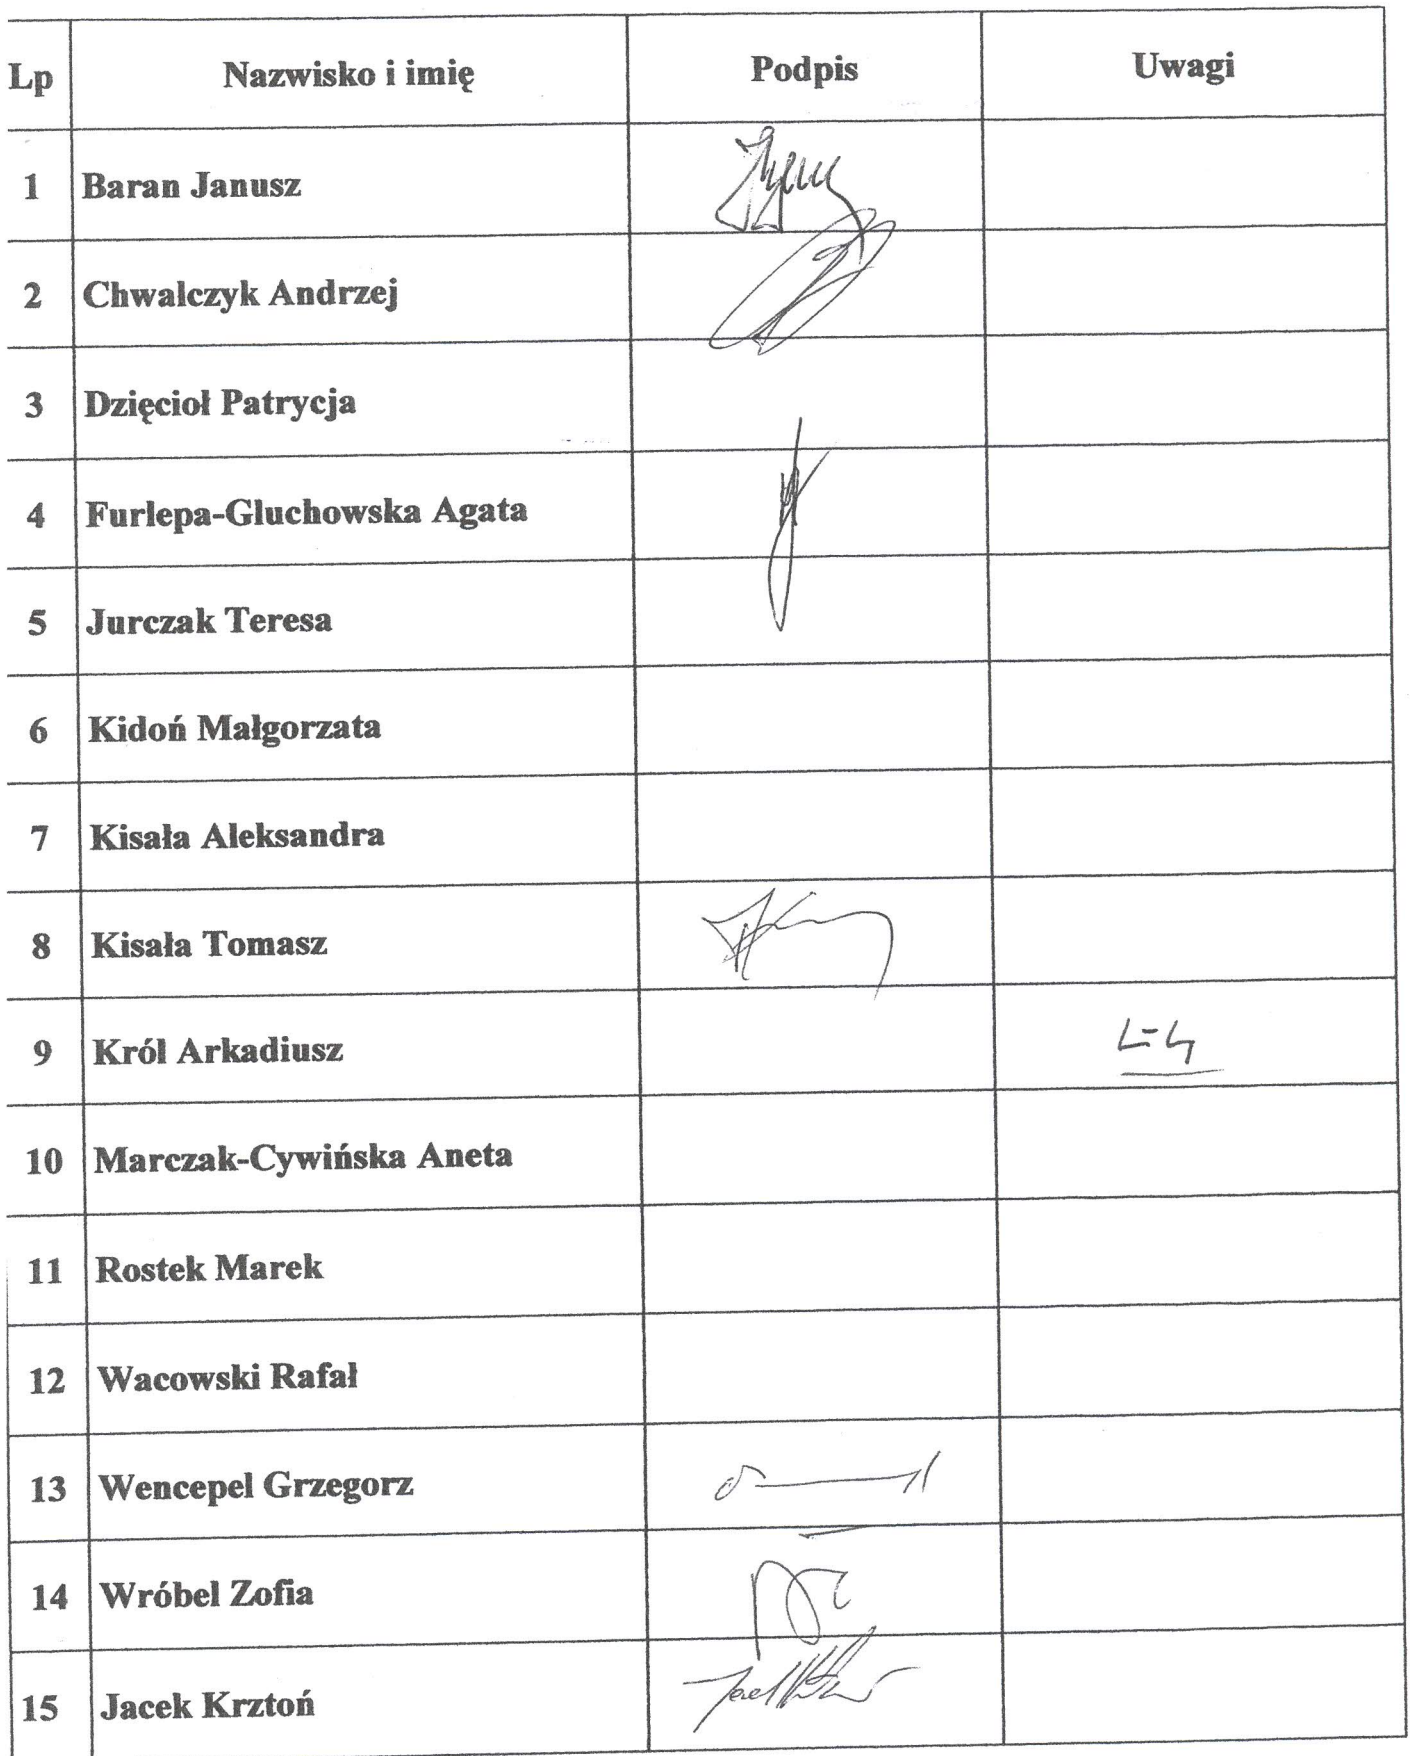 Lp Nazwisko i imię Podpis Uwagi
1 Baran Janusz
2 Chwalczyk Andrzej
3 Dzięcioł Patrycja
4 Furlepa-Gluchowska Agata
5 Jurczak Teresa
6 Kidoń Małgorzata
7 Kisała Aleksandra
8 Kisała Tomasz
9 Król Arkadiusz
10 Marczak-Cywińska Aneta
11 Rostek Marek
12 Wacowski Rafał
13 Wencepel Grzegorz
14 Wróbel Zofia
15 Jacek Krztoń